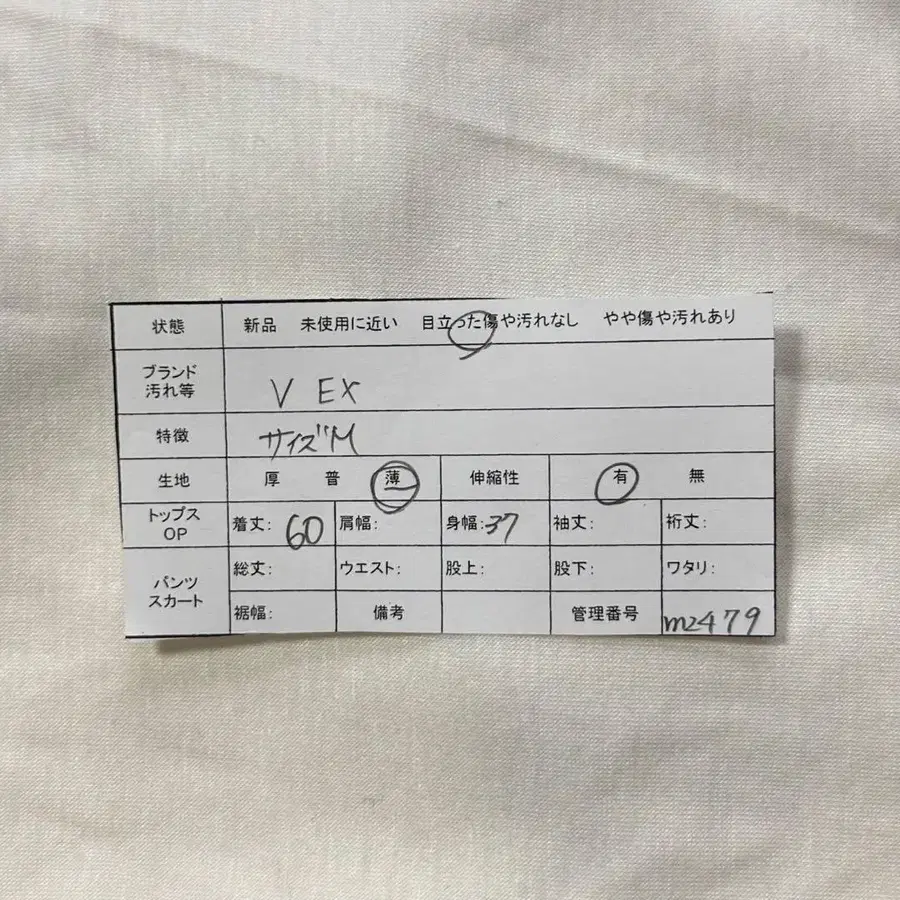 状態 新品 未使用に近い 目立った傷や汚れなし やや傷や汚れあり
ブランド
汚れ等
V EX
特徴 サイズM
生地 厚 普 薄 伸縮性 有 無
トップス
OP
着丈: 60 肩幅: 身幅: 37 袖丈: 裄丈:
パンツ
スカート
総丈: ウエスト: 股上: 股下: ワタリ:
裾幅: 備考 管理番号 m2479